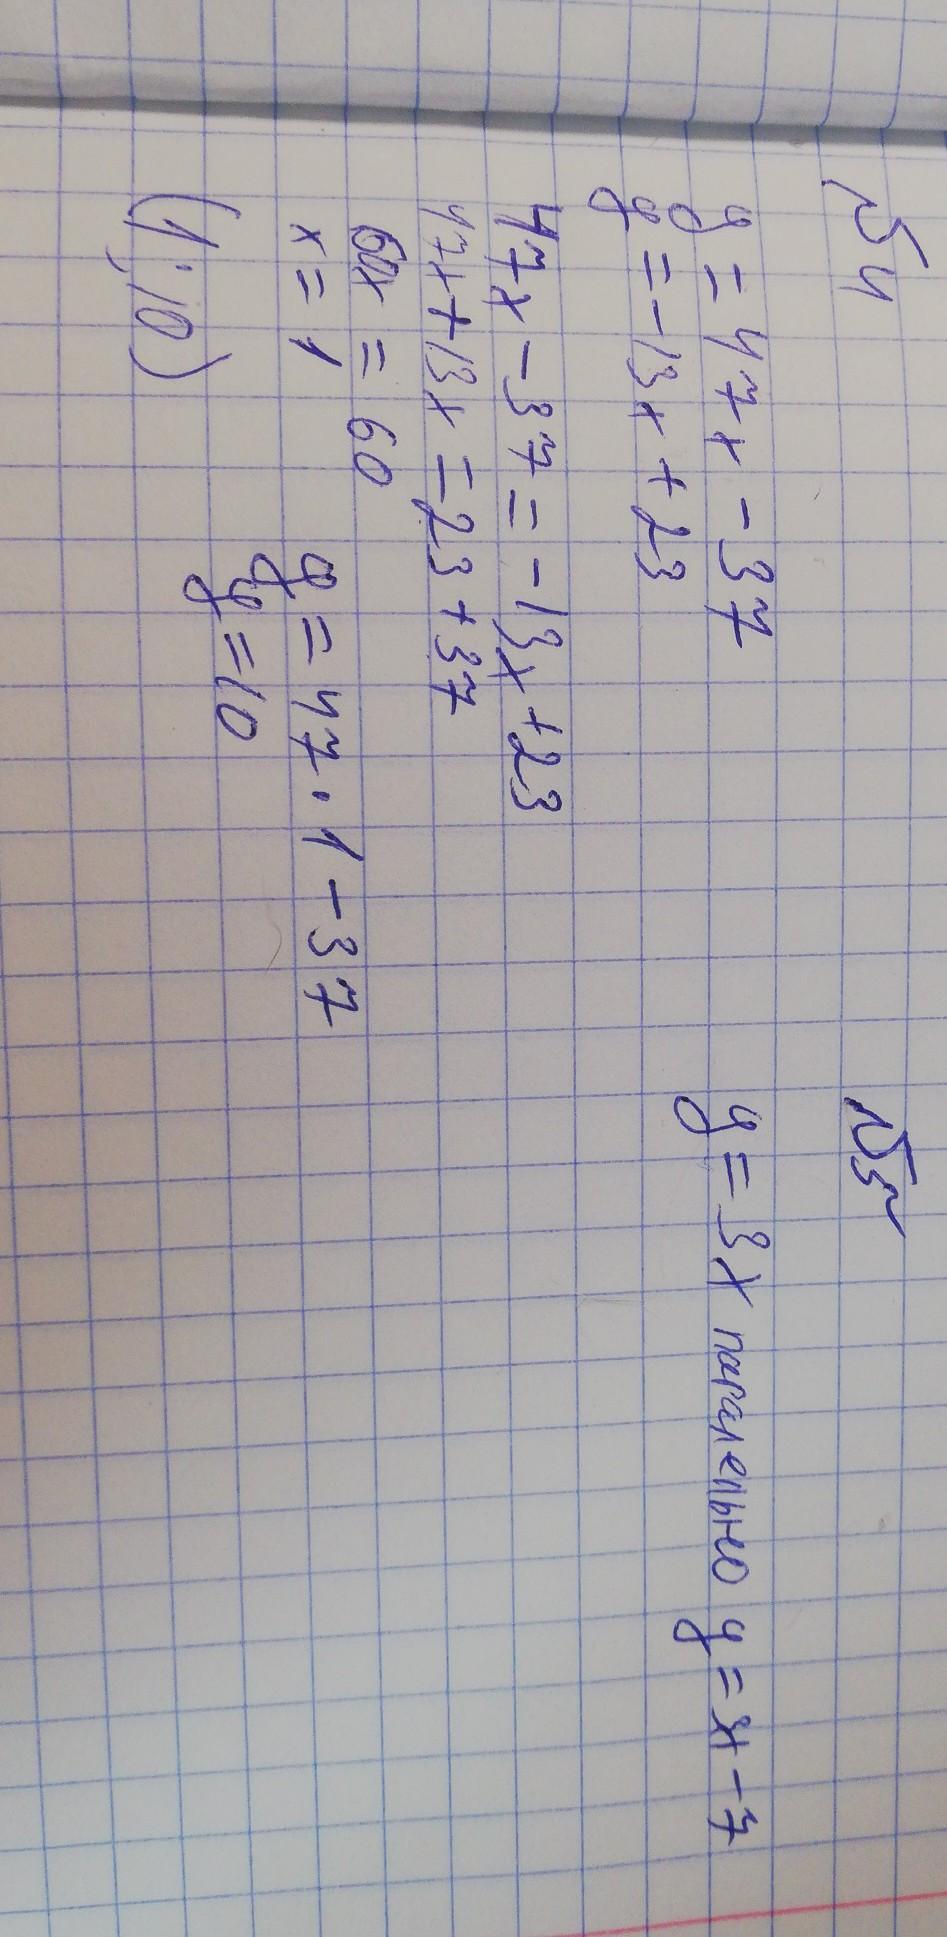 №4
y = 47x - 37
y = -13x + 23
47x - 37 = -13x + 23
47x + 13x = 23 + 37
60x = 60
x = 1
y = 47 · 1 - 37
y = 10
(1; 10)
№5
y = 3x паралельно y = 3x - 7